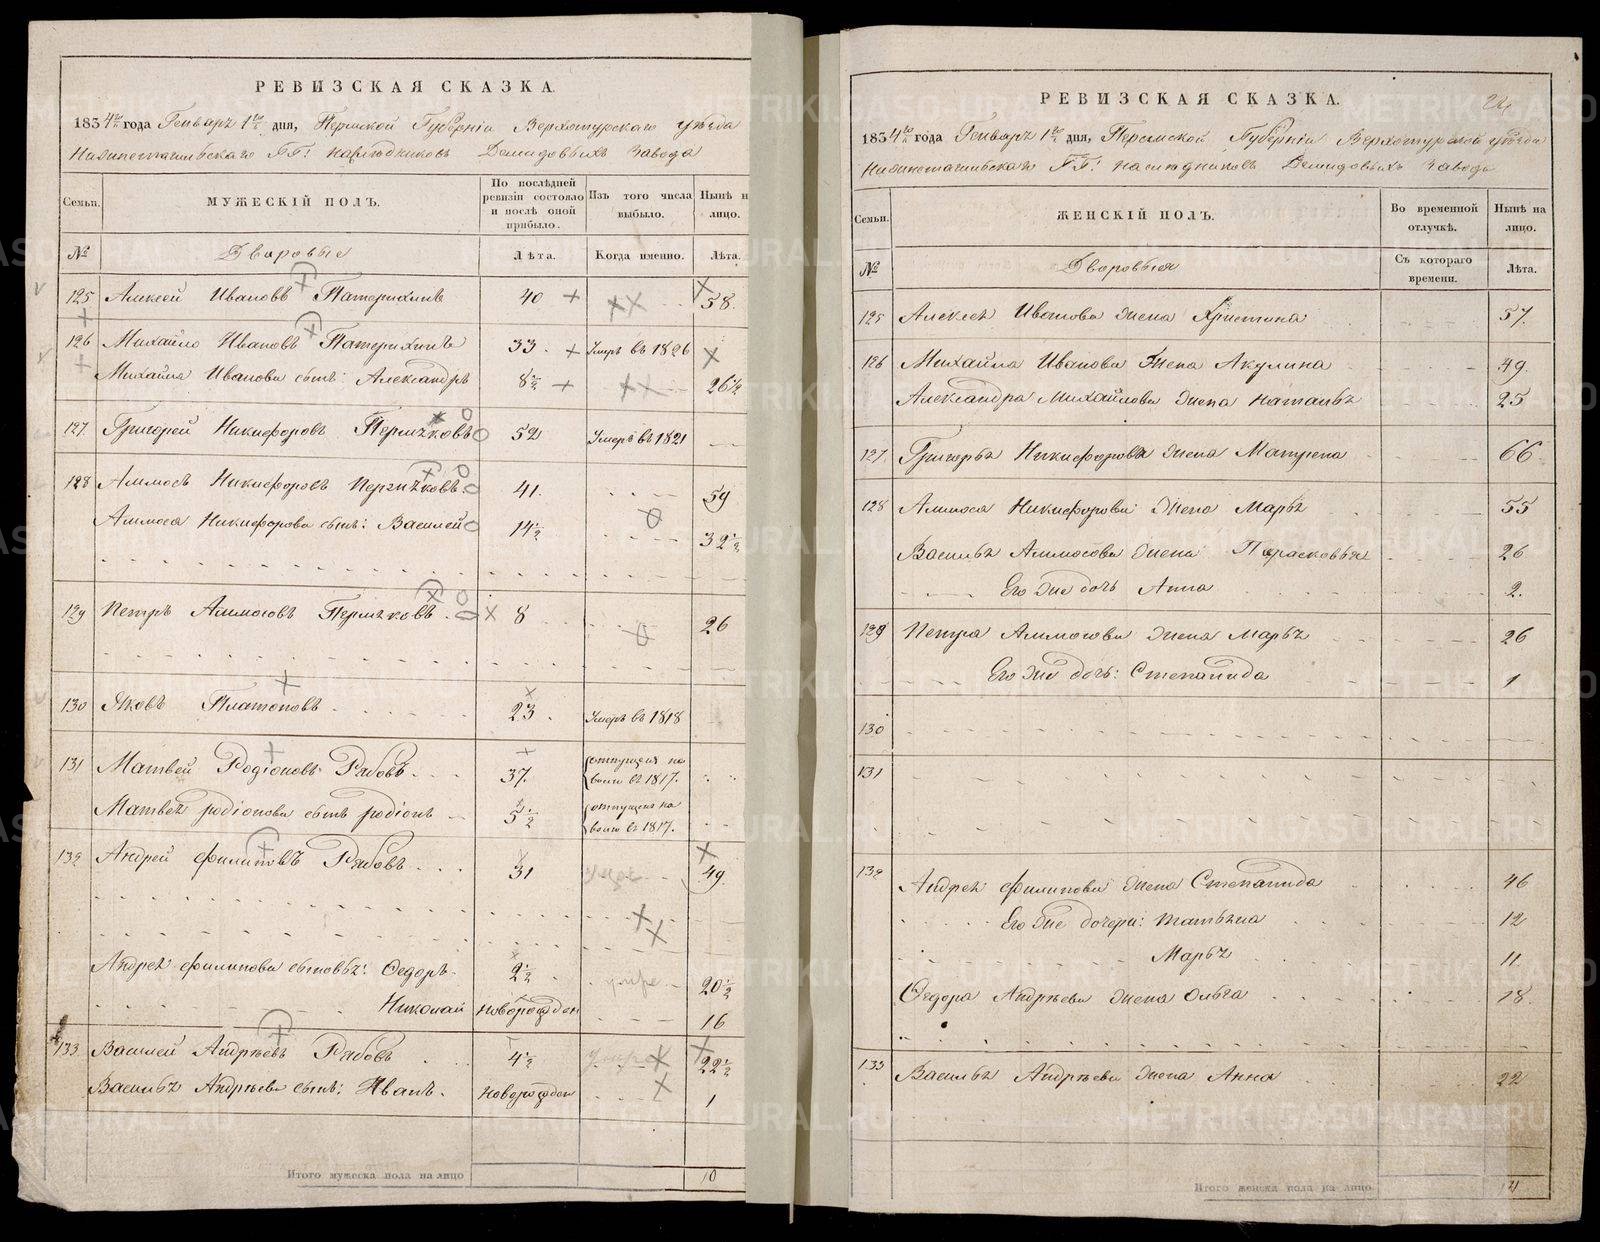 РЕВИЗСКАЯ СКАЗКА.
1834 года Генваря 1 дня, Пермской Губерніи Верхотурскаго уѣзда
Нижнетагильскаго ГГ: наслѣдниковъ Демидовыхъ Завода
Семьи. МУЖЕСКІЙ ПОЛЪ. По послѣдней ревизіи состояло и послѣ оной прибыло. Изъ того числа выбыло. Нынѣ на лицо.
№ Дворовые Лѣта. Когда именно. Лѣта.
125 Алексей Ивановъ 40 58.
126 Михайло Ивановъ 33. Умеръ въ 1826
Михайла Иванова сынъ: Александръ 8½ 26½
127. Григорей Никифоровъ Пермяковъ 52 Умеръ въ 1821
128 Аммосъ Никифоровъ Пермяковъ 41. 59
Аммоса Никифорова сынъ: Василей 14½ 32½
129 Петръ Аммосовъ Пермяковъ. 8 26
130 Яковъ Платоновъ 23. Умеръ въ 1818
131 Матвей Родіоновъ Рябовъ 37. отпущенъ на волю въ 1817.
Матвея родіонова сынъ родіонъ 5½ отпущенъ на волю въ 1817.
132 Андрей Филиповъ Рябовъ 31 49
Андрея Филипова сыновья: Ѳедоръ 2½ 20½
Николай новорожденъ 16
133. Василей Андрѣевъ Рябовъ 4½ 22½
Василья Андрѣева сынъ: Иванъ. новорожденъ 1
Итого мужеска пола на лицо 10
РЕВИЗСКАЯ СКАЗКА. 24
1834 года Генваря 1 дня, Пермской Губерніи Верхотурской уѣзда
Нижнетагильскаго ГГ: наслѣдниковъ Демидовыхъ Завода
Семьи. ЖЕНСКІЙ ПОЛЪ. Во временной отлучкѣ. Нынѣ на лицо.
№ Дворовыя Съ котораго времени. Лѣта.
125 Алексея Иванова жена Христина 57.
126 Михайла Иванова жена Акулина 49.
Александра Михайлова жена Наталья 25
127. Григорья Никифорова жена Матрена 66
128 Аммоса Никифорова жена Марья 55
Василья Аммосова жена Парасковья 26
Его же дочь Анна 2.
129 Петра Аммосова жена Марья 26
Его же дочь: Степанида 1
130
131
132 Андрея Филипова жена Степанида 46
Его же дочери: Татьяна 12
Марья 11.
Ѳедора Андрѣева жена Ольга 18.
133 Василья Андрѣева жена Анна 22
Итого женска пола на лицо 14
METRIKI.GASO-URAL.RU